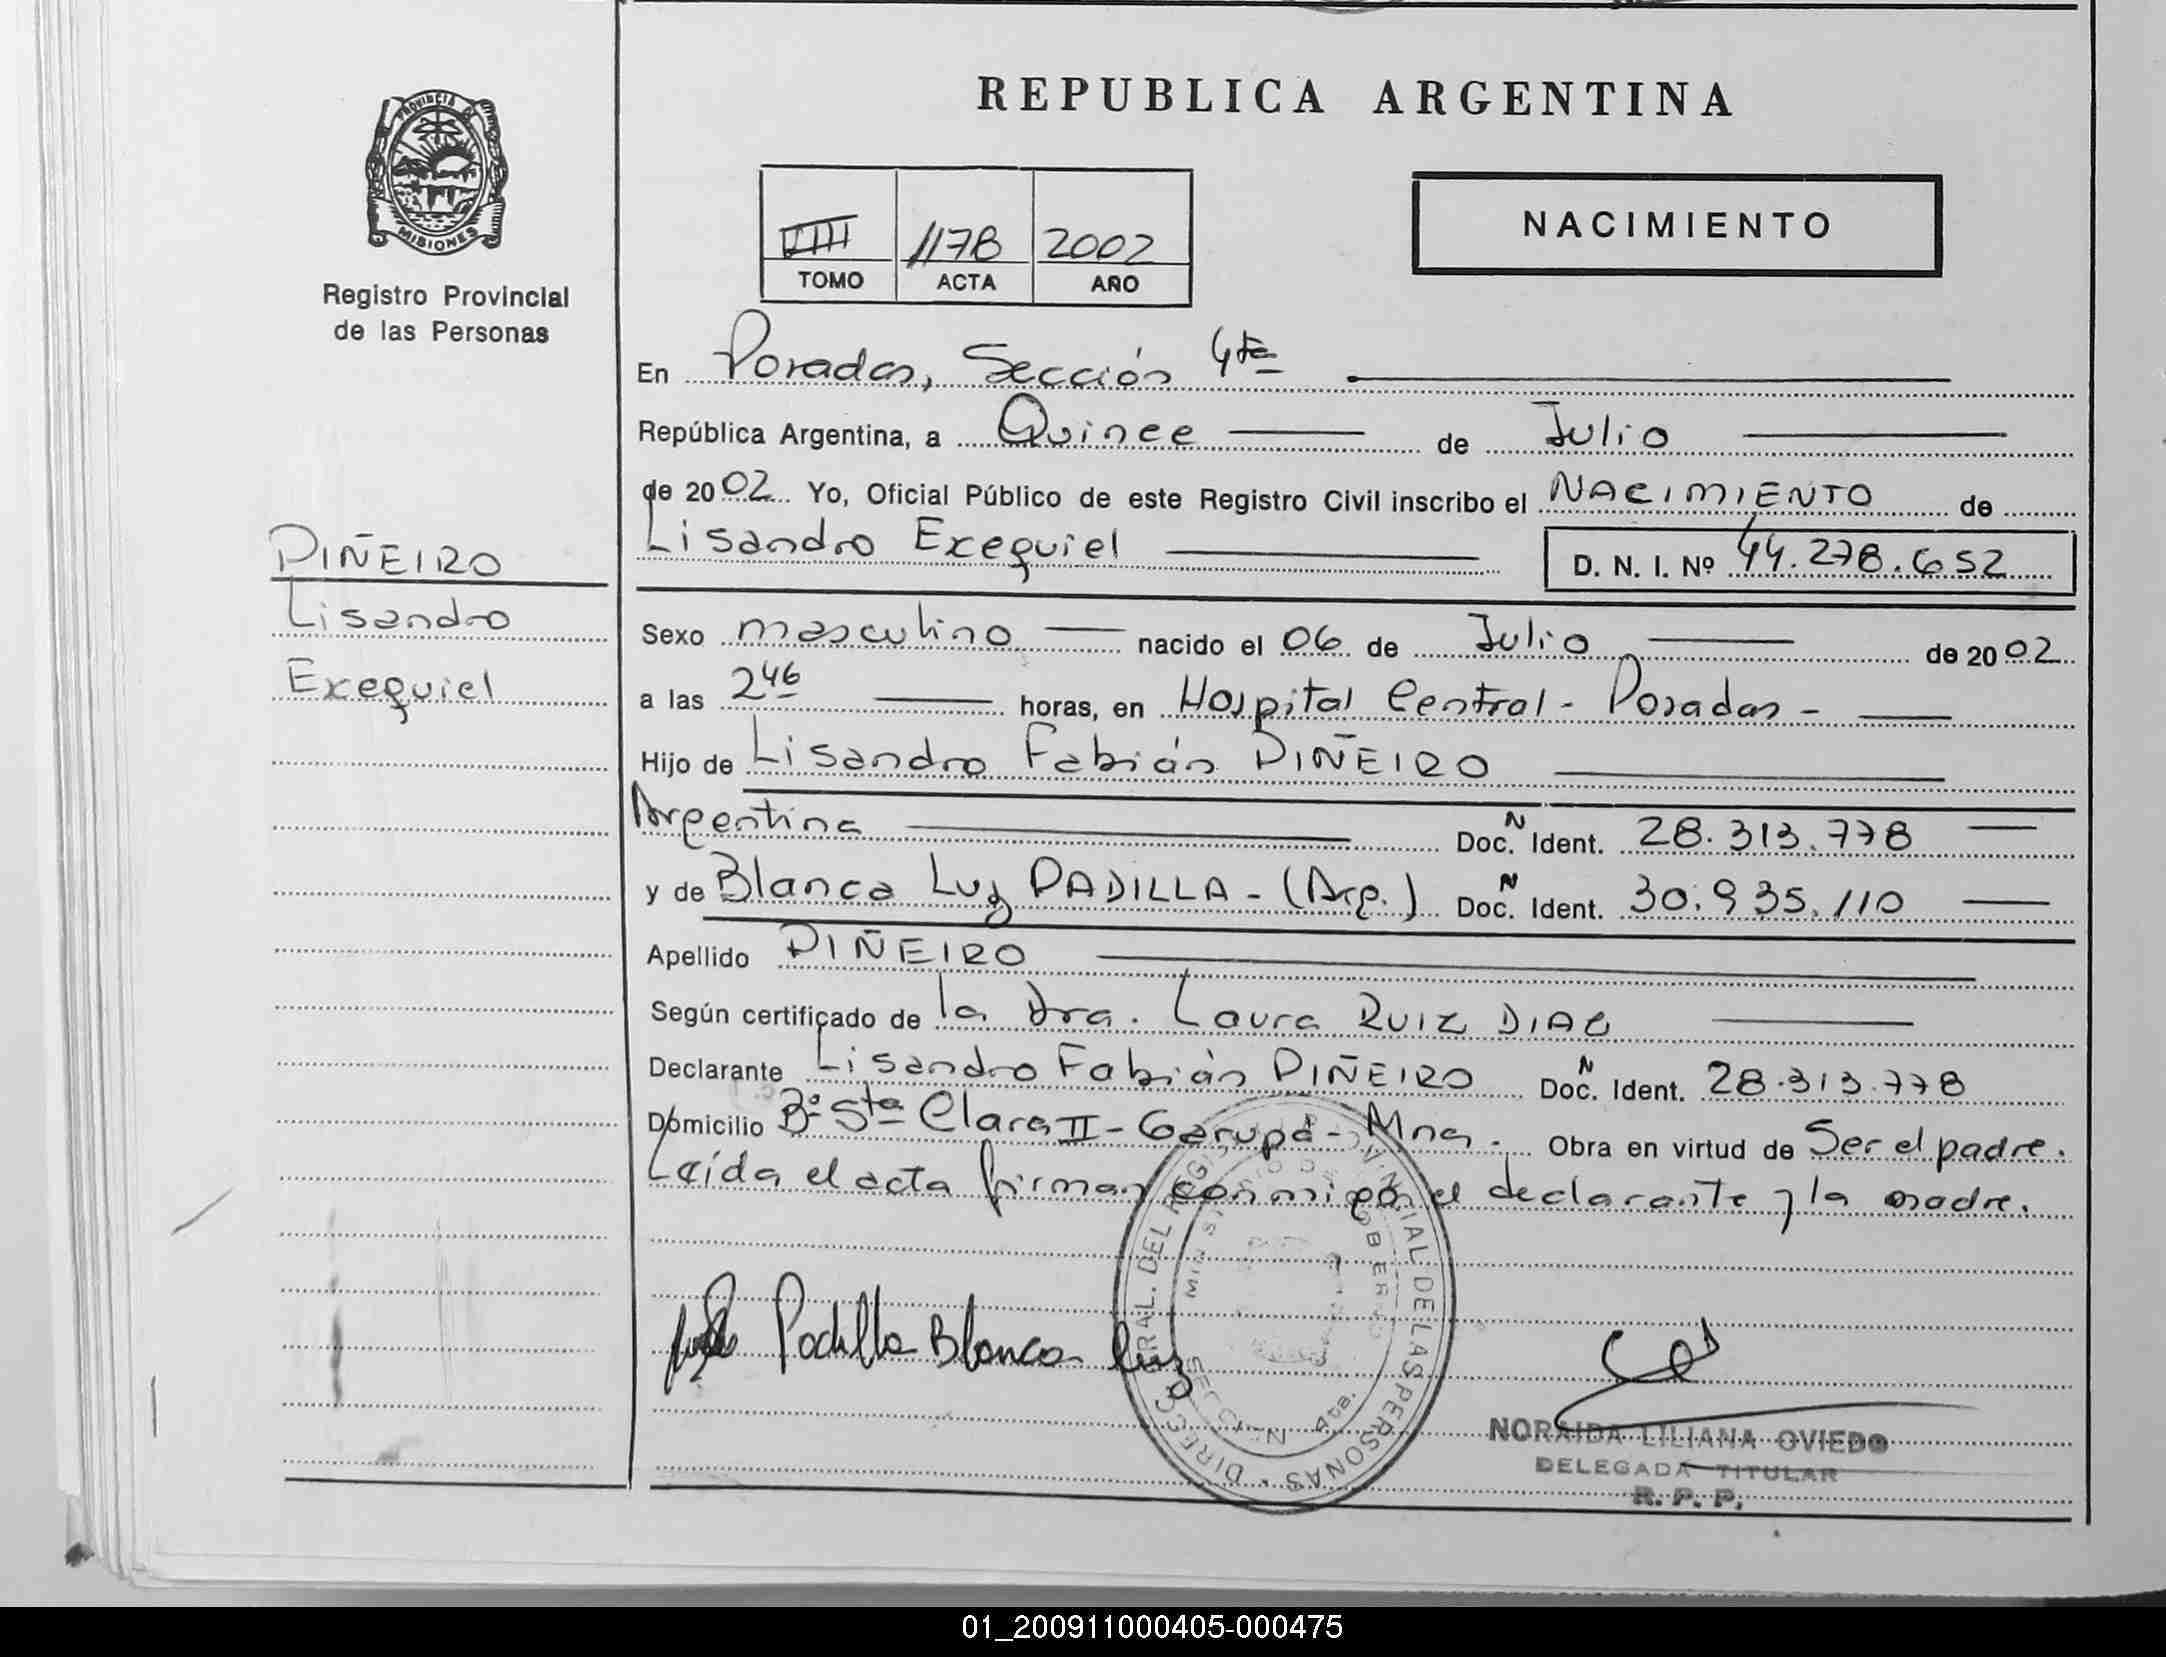 REPUBLICA ARGENTINA
PROVINCIA DE
MISIONES
Registro Provincial
de las Personas
1178 2002
TOMO ACTA AÑO
NACIMIENTO
En Posadas, Sección 4ta
República Argentina, a Quince de Julio
de 2002 Yo, Oficial Público de este Registro Civil inscribo el NACIMIENTO de
Lisandro Exequiel D. N. I. Nº 44.278.652
PIÑEIRO
Lisandro
Exequiel
Sexo masculino nacido el 06 de Julio de 2002
a las 2 46 horas, en Hospital Central - Posadas -
Hijo de Lisandro Fabián PIÑEIRO
Argentina Doc. N Ident. 28.313.778
y de Blanca Luz PADILLA - (Arg.) Doc. N Ident. 30.935.110
Apellido PIÑEIRO
Según certificado de la Dra. Laura RUIZ DIAZ
Declarante Lisandro Fabián PIÑEIRO Doc. N Ident. 28.313.778
Domicilio Bº Sta Clara II - Garupá - Mnes. Obra en virtud de Ser el padre.
Leída el acta firman conmigo el declarante y la madre.
Padilla Blanca Luz
DIREC. GRAL. DEL REGISTRO PROVINCIAL DE LAS PERSONAS
MINISTERIO DE GOBIERNO
SECCION 4ta.
NORAIDA LILIANA OVIEDO
DELEGADA TITULAR
R. P. P.
01_200911000405-000475